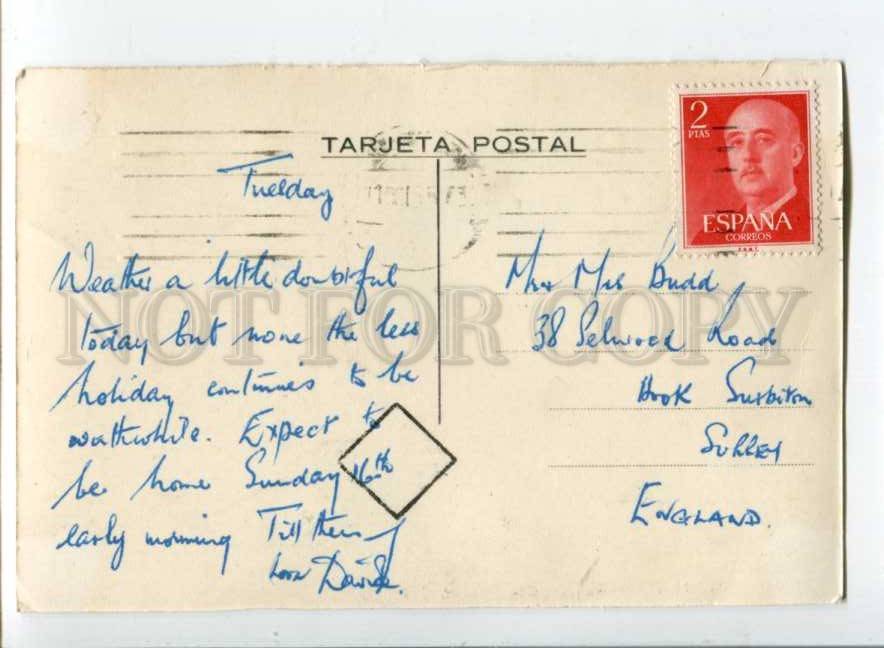 TARJETA POSTAL
2
PTAS
ESPAÑA
CORREOS
Tuesday
Weather a little doubtful
today but none the less
holiday continues to be
worthwhile. Expect to
be home Sunday 16th
early morning Till then
love
Mr & Mrs Budd,
38 Selwood Road
Hook Surbiton
SURREY
ENGLAND.
NOT FOR COPY